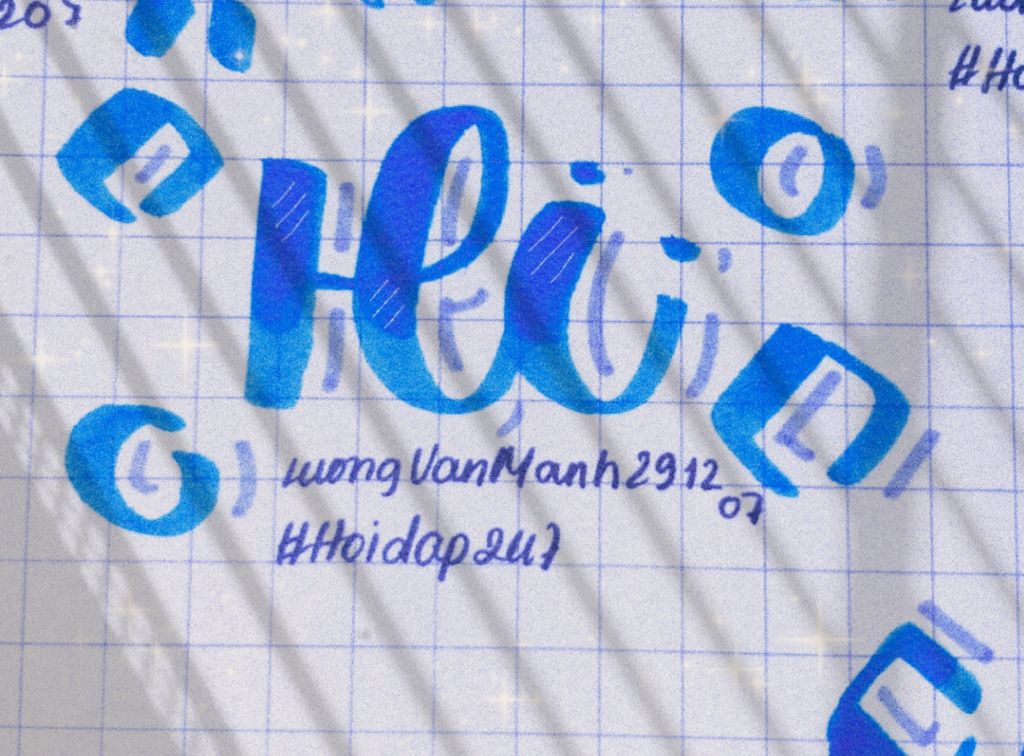 207
#Ho
Hi
luongVanManh2912
07
#Hoidap247